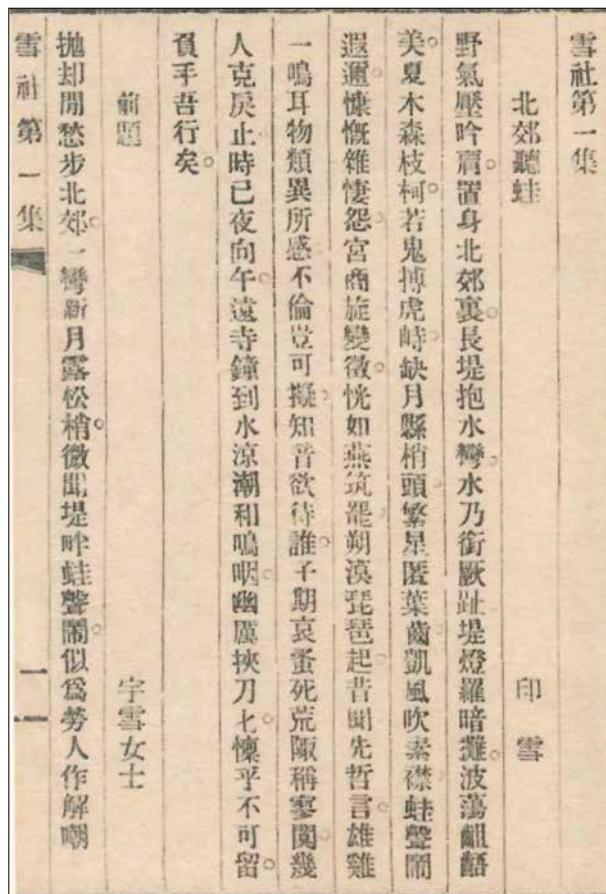 雪社第一集
北郊聽蛙　印雪
野氣壓吟肩。置身北郊裏。長堤抱水灣。水乃銜厥趾堤燈羅暗灘。波蕩齟齬
美。夏木森枝柯。若鬼搏虎峙。缺月縣梢頭繁星匿葉齒凱風吹素襟。蛙聲鬧
遐邇。慷慨雜悽怨。宮商旋變徵。恍如燕筑罷。朔漠琵琶起。昔聞先哲言。雄雞
一鳴耳物類異所感不倫豈可擬。知音欲待誰。子期哀蚤死荒陬稱寥闃。幾
人克戾止時已夜向午。遠寺鐘到水涼潮和鳴咽。幽厲挾刀匕。懍乎不可留。
負手吾行矣。
前題　宇雪女士
拋却閒愁步北郊。一彎新月露松梢。微聞堤畔蛙聲鬧。似為勞人作解嘲
雪社第一集　一一